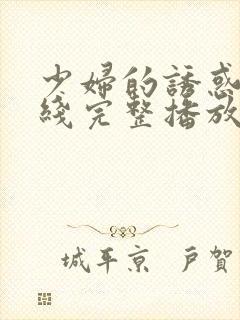 少婦的誘惑
綫完整播放
城平京 戸賀